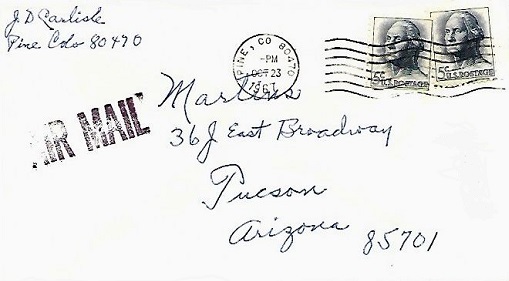 J.D Carlisle
Pine Colo 80470
PINE, CO 80470
-PM
OCT 23
5¢ U.S. POSTAGE
5¢ U.S. POSTAGE
AIR MAIL
Martens
36J East Broadway
Tucson
Arizona 85701